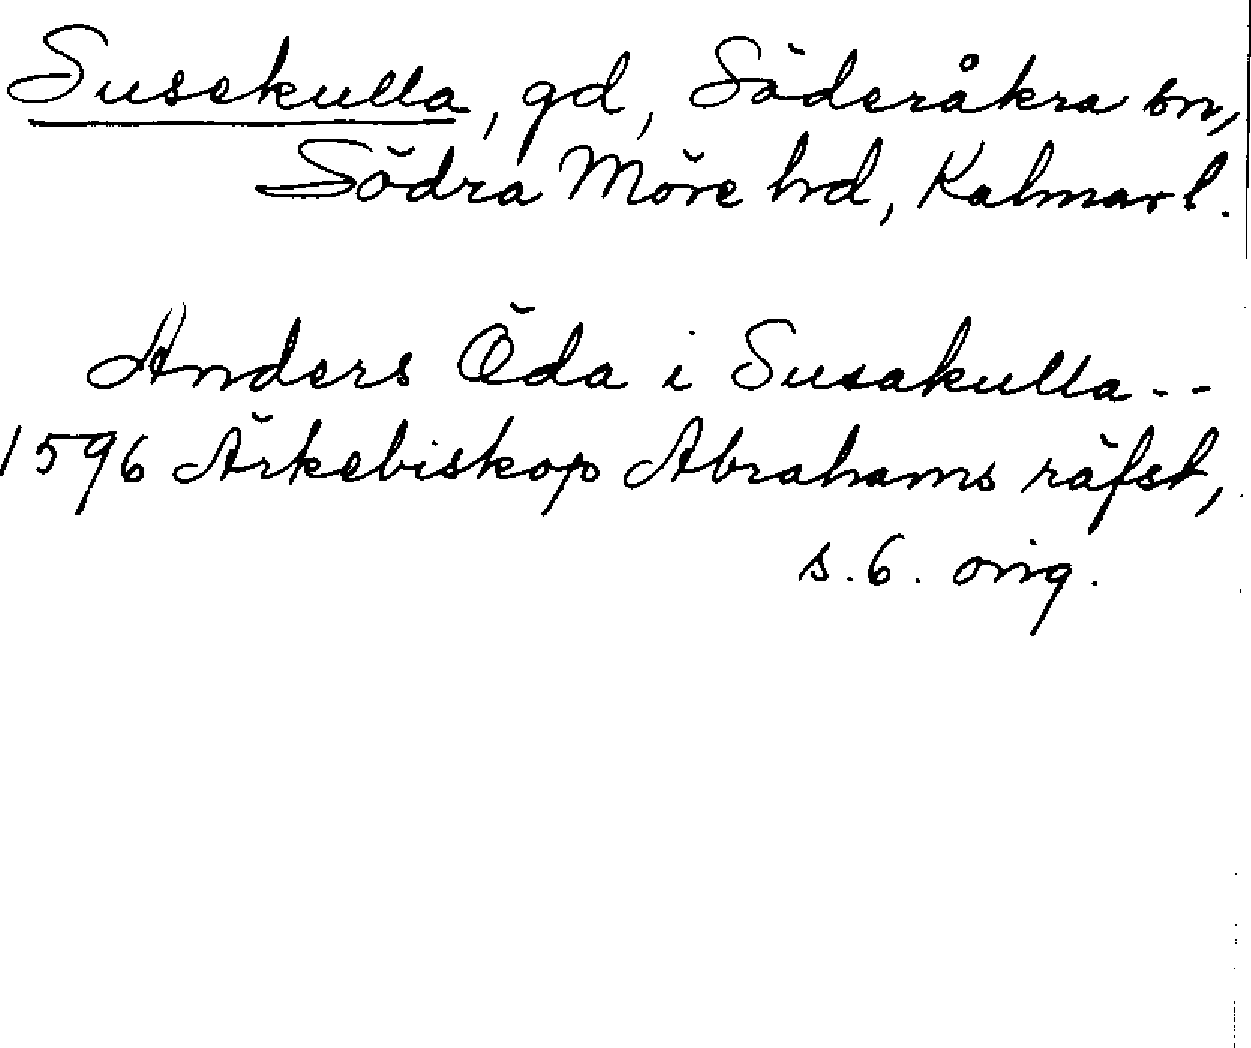 Susekulla, gd, Söderåkra sn,
Södra Möre hd, Kalmar l.
Anders Öda i Susakulla - -
1596 Ärkebiskop Abrahams räfst,
s. 6. orig.